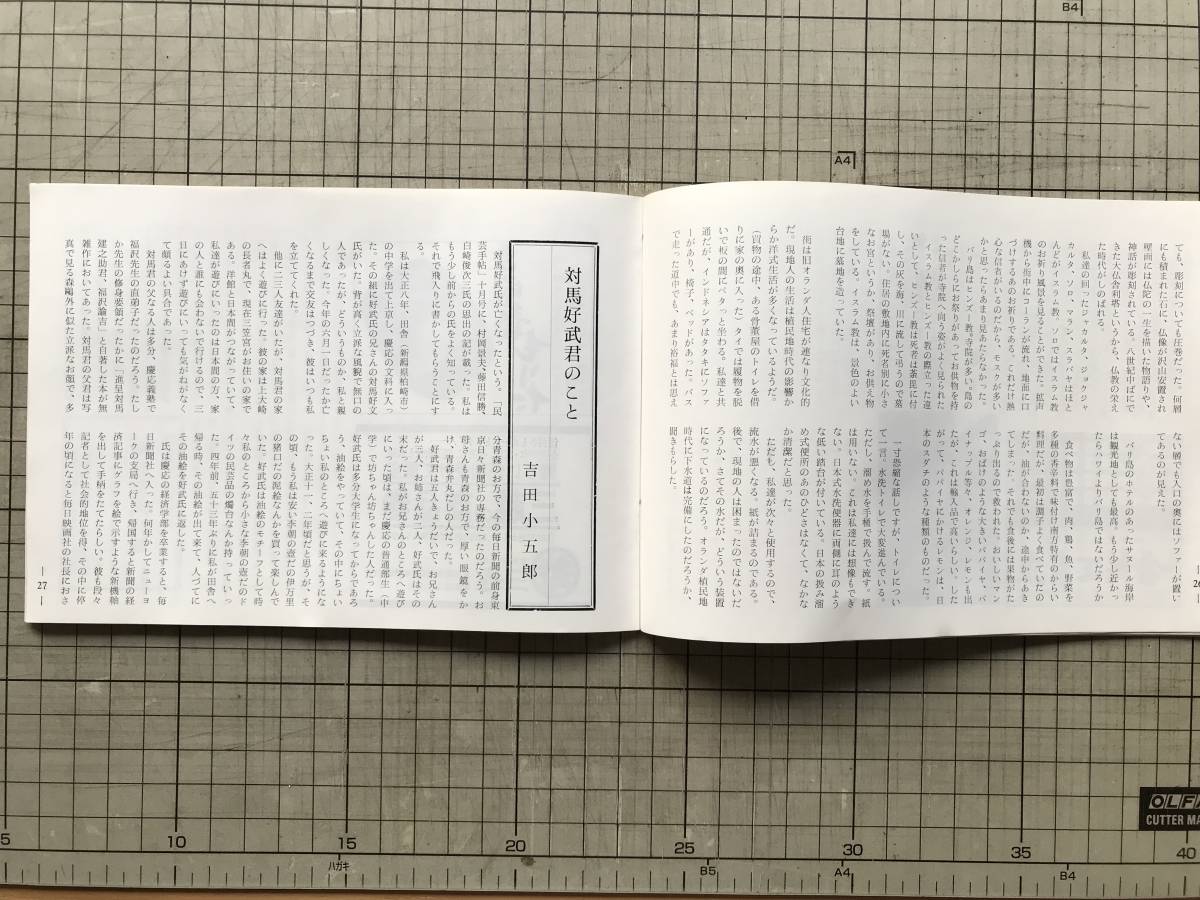 ても、彫刻についても圧巻だった。何層
にも積まれた石に、仏像が沢山安置され
壁画には仏陀の一生を描いた物語りや、
神話が彫刻されている。八世紀中ばにで
きた大仏舎利塔というから、仏教の栄え
た時代がしのばれる。
私達の回ったジャカルタ、ジョクジャ
カルタ、ソロ、マラン、スラバヤはほと
んどがイスラム教、ソロではイスラム教
のお祈り風景を見ることができた。拡声
機から街中にコーランが流れ、地面に口
づけするあのお祈りである。これだけ熱
心な信者がいるのだから、モスクが多い
かと思ったらあまり見あたらなかった。
バリ島はヒンズー教、寺院が多い。島の
どこかしらにお祭りがあってお供物を持
った信者が寺院へ向う姿がよく見られた
イスラム教とヒンズー教の際立った違
いとして、ヒンズー教は死者は荼毘に付
し、その灰を海、川に流して弔うので墓
場がない。住居の敷地内に死者別に小さ
なお宮というか、祭壇があり、お供え物
をしている。イスラム教は、景色のよい
台地に墓地を造っていた。
街は旧オランダ人住宅が連なり文化的
だ。現地人の生活は植民地時代の影響か
らか洋式生活が多くなっているようだ。
（買物の途中、ある骨董屋のトイレを借
りに家の奥に入った）タイでは履物を脱
いで板の間にペタッと坐わる。私達と共
通だが、インドネシアはタタキにソファ
ーがあり、椅子、ベッドがあった。バス
で走った道中でも、あまり裕福とは思え
ない層でも入口の奥にはソファーが置い
てあるのが見えた。
バリ島のホテルのあったサヌール海岸
は観光地としても最高。もう少し近かっ
たらハワイよりバリ島ではないだろうか
食べ物は豊富で、肉、鶏、魚、野菜を
多種の香辛料で味付け南方特有のからい
料理だが、最初は調子よく食べていたの
だが、油が合わないのか、途中からあき
てしまった。それでも食後には果物がた
っぷり出るので救われた。おいしいマン
ゴ、おばけのような大きいパパイヤ、パ
イナップル等々、オレンジ、レモンも出
たが、これは輸入品で高いらしい。した
がって、パパイヤにかけるレモンは、日
本のスダチのような種類のものだった。
一寸恐縮な話しですが、トイレについ
て一言。水洗トイレで大変進んでいる。
ただし、溜め水を手桶で扱んで流す。紙
は用いない。これは私達には想像もでき
ない。日本式水洗便器に両側に耳のよう
な低い踏台が付いている。日本の扱み溜
め式便所のあのひどさはなくて、なかな
か清潔だと思った。
ただだも、私達が次々と使用するので、
流水が悪くなる。紙が詰まるのである。
後で、現地の人は困まったのではないだ
ろうか、さてその水だが、どういう装置
になっているのだろう。オランダ植民地
時代に下水道は完備にしたのだろうか、
聞きもらした。
26
対馬好武君のこと
吉田小五郎
対馬好武氏が亡くなったという。「民
芸手帖」十月号に、村岡景夫、藤田信勝、
白崎俊次三氏の思出の記が載った。私は
もう少し前からの氏をよく知っている。
それで飛入りに書かしてもらうことにす
る。
私は大正八年、田舎（新潟県柏崎市）
の中学を出て上京し、慶応の文科に入っ
た。その組に好武氏の兄さんの対馬好文
氏がいた。背が高く立派な風貌で無口の
人であったが、どういうものか、私と親
しくなった。今年の六月一日だったか亡
くなるまで交友はつづき、彼はいつも私
を立ててくれた。
他に二三人友達がいたが、対馬君の家
へはよく遊びに行った。彼の家は上大崎
の長者丸で、現在三笠宮がお住いの家で
ある。洋館と日本間がつながっていて、
私達が遊びにいったのは日本間の方、家
の人と誰にも会わないで行けるので、三
日にあけず遊びにいっても気がねがなく
て頗るよい具合であった。
対馬君の父なる人は多分、慶応義塾で
福沢先生の直弟子だったのだろう。たし
か先生の修身要領だったかに「進呈対馬
健之助君、福沢諭吉」と自署した本が無
雑作においてあった。対馬君の父君は写
真で見る森鷗外に似た立派なお顔で、多
分青森のお方で、今の毎日新聞の前身東
京日々新聞社の専務だったのだろう。お
母さんも青森のお方で、厚い眼鏡をか
け、青森弁丸だしの人だった。
好武君は五人きょうだいで、お兄さん
が三人、お姉さんが一人、好武氏はその
末だった。私がお兄さんのところへ遊び
にいった頃は、まだ慶応の普通部生（中
学）で坊ちゃん坊ちゃんした人だった。
好武氏は多分大学生になってからであろ
う、油絵をやっていて、その中にちょい
ちょい私のところへ遊びに来るようにな
った。大正十一、二年頃だと思うが、そ
の頃、もう私は安い李朝の壺だの伊万里
の猪口だの泥絵なんかを買って楽しんで
いた。好武氏は油絵のモチーフとして時
々私のところから小さな李朝の壺だのド
イツの民芸品の燭台なんか持っていっ
た。四年前、五十三年ぶりに私が田舎へ
帰る時、その油絵が出て来て、人づてに
その油絵を好武氏に返した。
氏は慶応の経済学部を卒業すると、毎
日新聞社へ入った。何年かしてニューヨ
ークの支局へ行き、帰国すると新聞の経
済記事にグラフを絵で示すような新機軸
を出して手柄をたてたらしい。彼も段々
記者として社会的地位を得、その中に停
年の頃になると毎日映画社の社長におさ
27
B4
A4
OLFA
CUTTER MA
5
10
15
20
25
30
35
40
ハガキ
B5
A4
B4